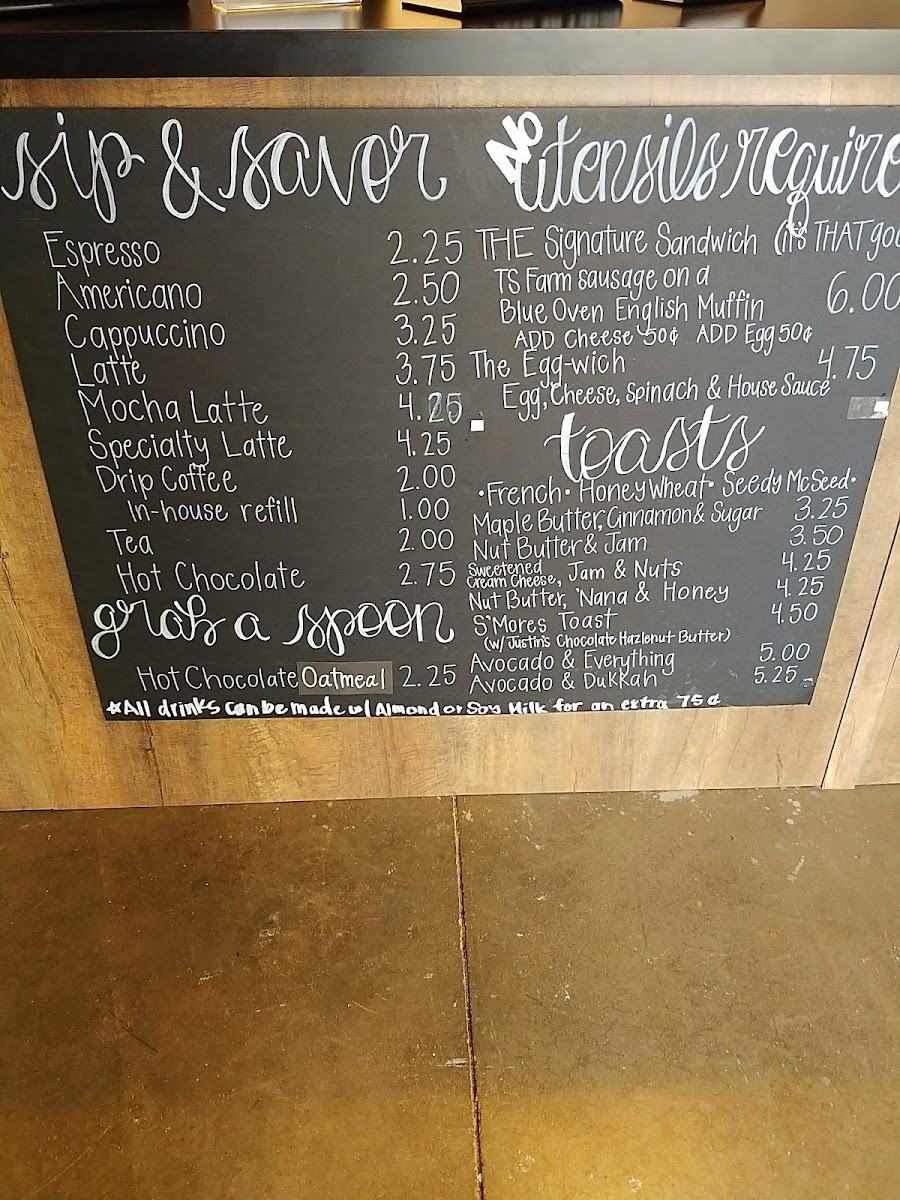 sip & savor
Espresso 2.25
Americano 2.50
Cappuccino 3.25
Latte 3.75
Mocha Latte 4.25
Specialty Latte 4.25
Drip Coffee 2.00
In-house refill 1.00
Tea 2.00
Hot Chocolate 2.75
grab a spoon
Hot Chocolate Oatmeal 2.25
No utensils require
THE Signature Sandwich (it's THAT goo
TS Farm sausage on a
Blue Oven English Muffin 6.00
ADD Cheese 50¢ ADD Egg 50¢
The Egg-wich 4.75
Egg, Cheese, Spinach & House Sauce
toasts
•French• Honey Wheat• Seedy McSeed•
Maple Butter, Cinnamon & Sugar 3.25
Nut Butter & Jam 3.50
Sweetened
Cream Cheese, Jam & Nuts 4.25
Nut Butter, 'Nana & Honey 4.25
S'Mores Toast 4.50
(w/ Justin's Chocolate Hazlenut Butter)
Avocado & Everything 5.00
Avocado & Dukkah 5.25
*All drinks can be made w/ Almond or Soy Milk for an extra 75¢